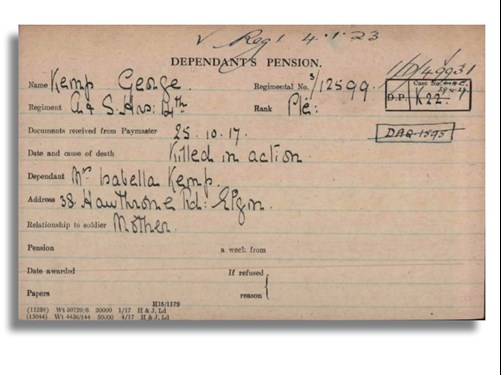 √ Reg1 4.1.23
DEPENDANT'S PENSION.
1/D/4993
Name Kemp George Regimental No. S/12599
Case No.
D.P. K22
Regiment A & S. Hrs: 4th Rank Pte:
Documents received from Paymaster 25.10.17.
Date and cause of death Killed in action
Dependant Mrs Isabella Kemp.
Address 38 Hawthrone Rd: Elgin.
Relationship to soldier Mother.
Pension a week from
Date awarded If refused
Papers reason
H15/1179
(11259) Wt 50720/6 20000 1/17 H & J. Ld
(15044) Wt 4436/144 50000 4/17 H & J. Ld